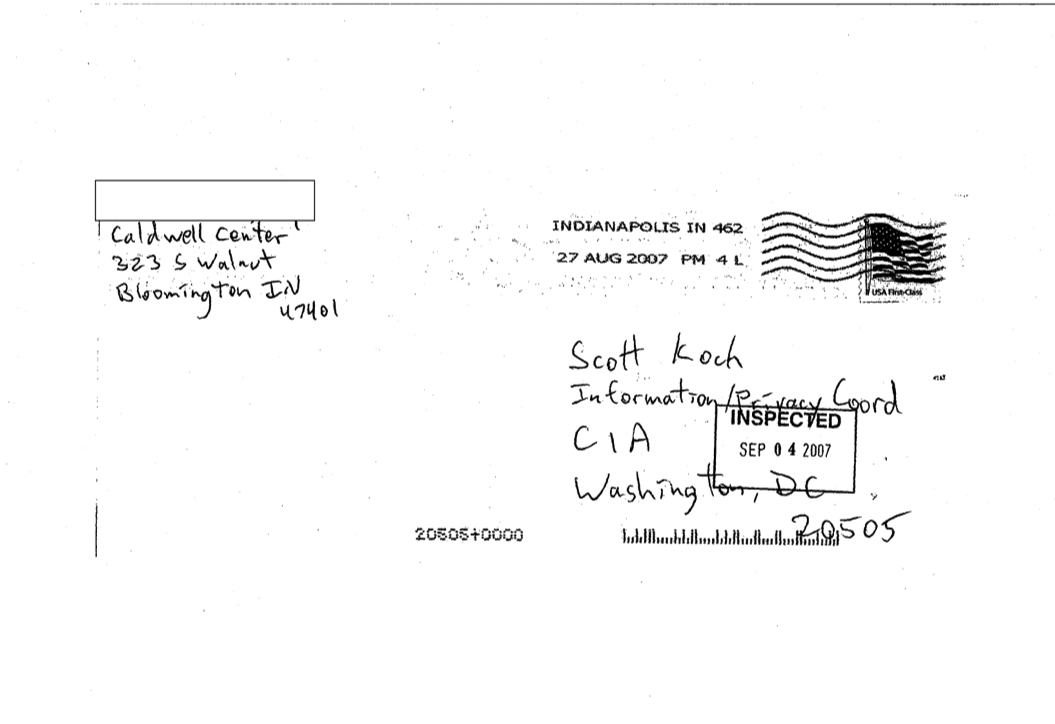 Caldwell Center
323 S Walnut
Bloomington IN
47401
INDIANAPOLIS IN 462
27 AUG 2007 PM 4 L
USA First-Class
Scott Koch
Information/Privacy Coord
CIA
Washington, DC
20505
INSPECTED
SEP 04 2007
20505+0000